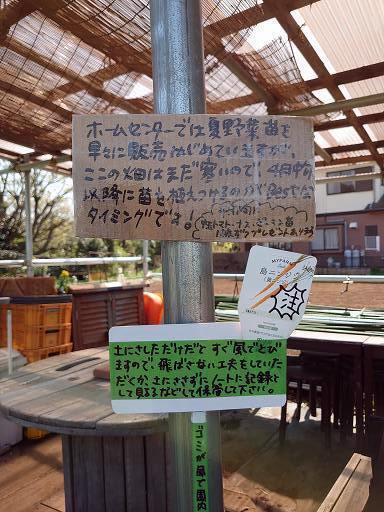 ホームセンターでは夏野菜苗を
早々に販売はじめていますが、
ここの畑はまだ寒いので4月中旬
以降に苗を植えつけるのがBestな
タイミングです!
土にさしただけだと すぐ風でとび
ますので、飛ばさない工夫をしていた
だくか、土にささずにノートに記録と
して貼るなどして保管して下さい。
ゴミが風で園内